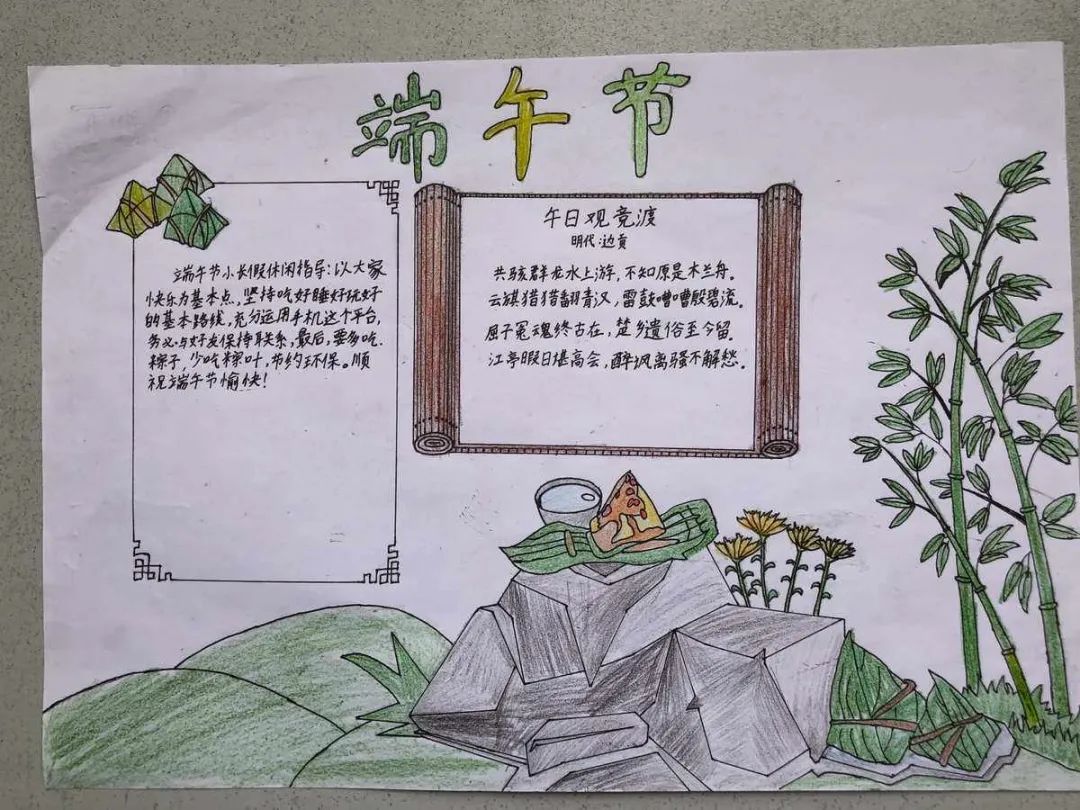 端午节
端午节小长假休闲指导:以大家
快乐为基本点,坚持吃好睡好玩好
的基本路线,充分运用手机这个平台,
务必与好友保持联系,最后,要多吃
粽子,少吃粽叶,节约环保。顺
祝端午节愉快!
午日观竞渡
明代:边贡
共骇群龙水上游,不知原是木兰舟。
云旗猎猎翻青汉,雷鼓嘈嘈殷碧流。
屈子冤魂终古在,楚乡遗俗至今留。
江亭暇日堪高会,醉讽离骚不解愁。